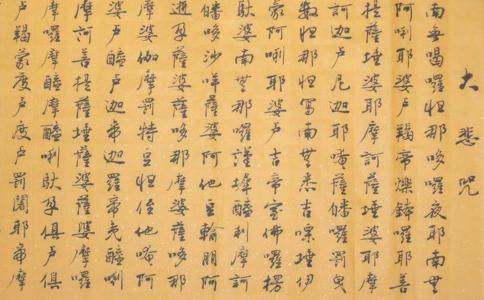 大悲咒
南无喝囉怛那哆囉夜耶南無
阿唎耶婆卢羯帝爍鉢囉耶菩
提薩埵婆耶摩訶薩埵婆耶摩
訶迦卢尼迦耶唵薩皤囉罰曳
数怛那怛寫南無悉吉嘌埵伊
蒙阿唎耶婆卢吉帝室佛囉楞
馱婆南無那囉謹墀醯利摩訶
皤哆沙咩薩婆阿他豆輸朋阿
逝孕薩婆薩哆那摩婆薩哆那
摩婆伽摩罰特豆怛侄他唵阿
婆卢醯卢迦帝迦羅帝夷醯唎
摩訶菩提薩埵薩婆薩婆摩囉
摩囉摩醯摩醯唎馱孕俱卢俱
卢羯蒙度卢度卢罰闍耶帝摩